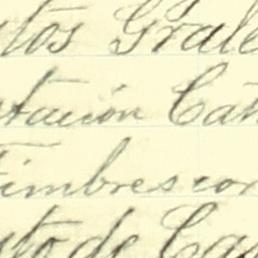 tos Grale
stación Can
timbres cor
to de Ca